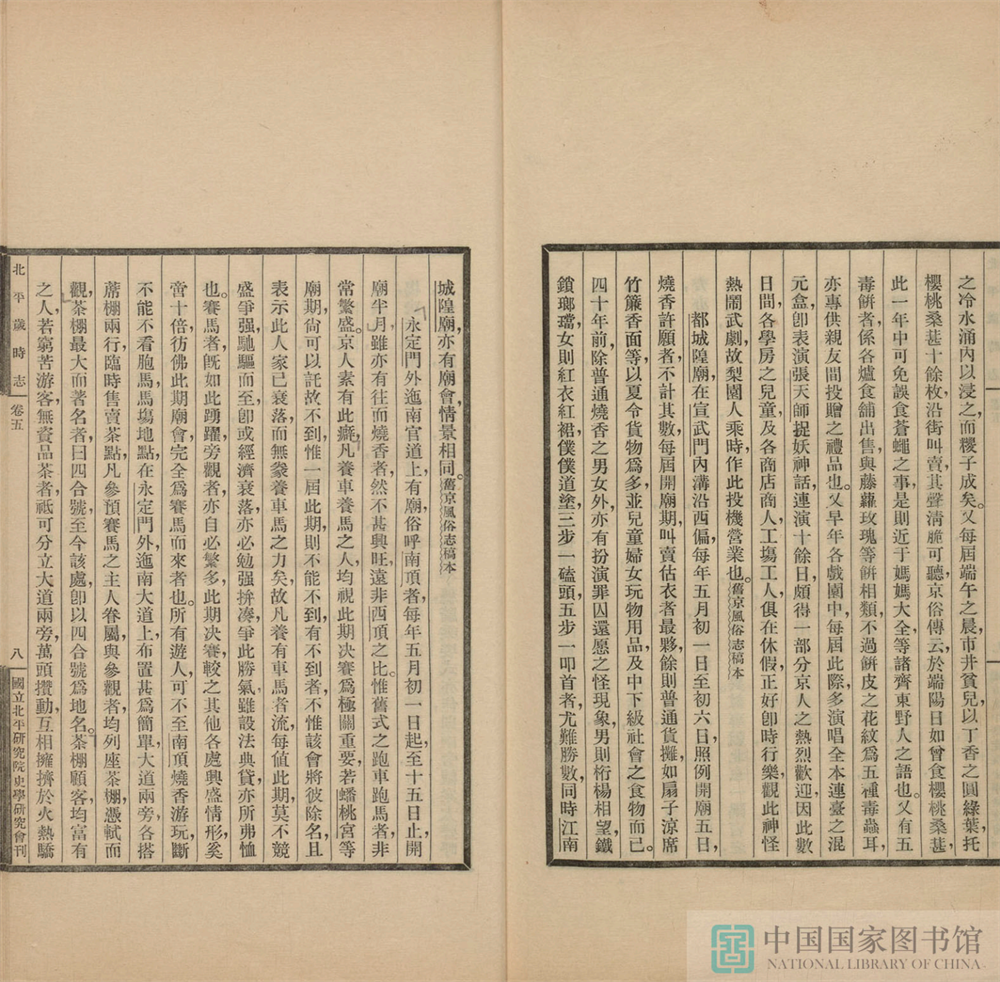 之冷水涌內以浸之而糉子成矣。又每屆端午之晨市井貧兒以丁香之圓綠葉托
櫻桃桑葚十餘枚沿街叫賣其聲清脆可聽京俗傳云於端陽日如曾食櫻桃桑葚
此一年中可免誤食蒼蠅之事是則近于媽媽大全等諸齊東野人之語也。又有五
毒餅者係各爐食舖出售與藤蘿玫瑰等餅相類不過餅皮之花紋爲五種毒蟲耳
亦專供親友間投贈之禮品也。又早年各戲園中每屆此際多演唱全本連臺之混
元盒卽表演張天師捉妖神話連演十餘日頗得一部分京人之熱烈歡迎因此數
日間各學房之兒童及各商店商人工塲工人俱在休假正好卽時行樂觀此神怪
熱鬧武劇故梨園人乘時作此投機營業也。舊京風俗志稿本
都城隍廟在宣武門內溝沿西偏每年五月初一日至初六日照例開廟五日
燒香許願者不計其數每屆開廟期叫賣估衣者最夥餘則普通貨攤如扇子涼席
竹簾香面等以夏令貨物爲多並兒童婦女玩物用品及中下級社會之食物而已。
四十年前除普通燒香之男女外亦有扮演罪囚還愿之怪現象男則桁楊相望鐵
鎖瑯璫女則紅衣紅裙僕僕道塗三步一磕頭五步一叩首者尤難勝數同時江南
城隍廟亦有廟會情景相同。舊京風俗志稿本
永定門外迤南官道上有廟俗呼南頂者每年五月初一日起至十五日止開
廟半月雖亦有往而燒香者然不甚興旺遠非西頂之比。惟舊式之跑車跑馬者非
常繁盛。京人素有此癖凡養車養馬之人均視此期決賽爲極關重要若蟠桃宮等
廟期尙可以託故不到惟一屆此期則不能不到有不到者不惟該會將彼除名且
表示此人家已衰落而無豢養車馬之力矣故凡養有車馬者流每値此期莫不競
盛爭强馳驅而至卽或經濟衰落亦必勉强拚凑爭此勝氣雖設法典貸亦所弗恤
也。賽馬者旣如此踴躍旁觀者亦自必繁多此期决賽較之其他各處興盛情形奚
啻十倍彷佛此期廟會完全爲賽馬而來者也。所有遊人可不至南頂燒香游玩斷
不能不看跑馬馬塲地點在永定門外迤南大道上布置甚爲簡單大道兩旁各搭
蓆棚兩行臨時售賣茶點凡參預賽馬之主人眷屬與參觀者均列座茶棚憑軾而
觀茶棚最大而著名者曰四合號至今該處卽以四合號爲地名。茶棚顧客均富有
之人若窮苦游客無資品茶者祇可分立大道兩旁萬頭攢動互相擁擠於火熱驕
北平歲時志
卷五
八
國立北平研究院史學研究會刊
中国国家图书馆
NATIONAL LIBRARY OF CHINA